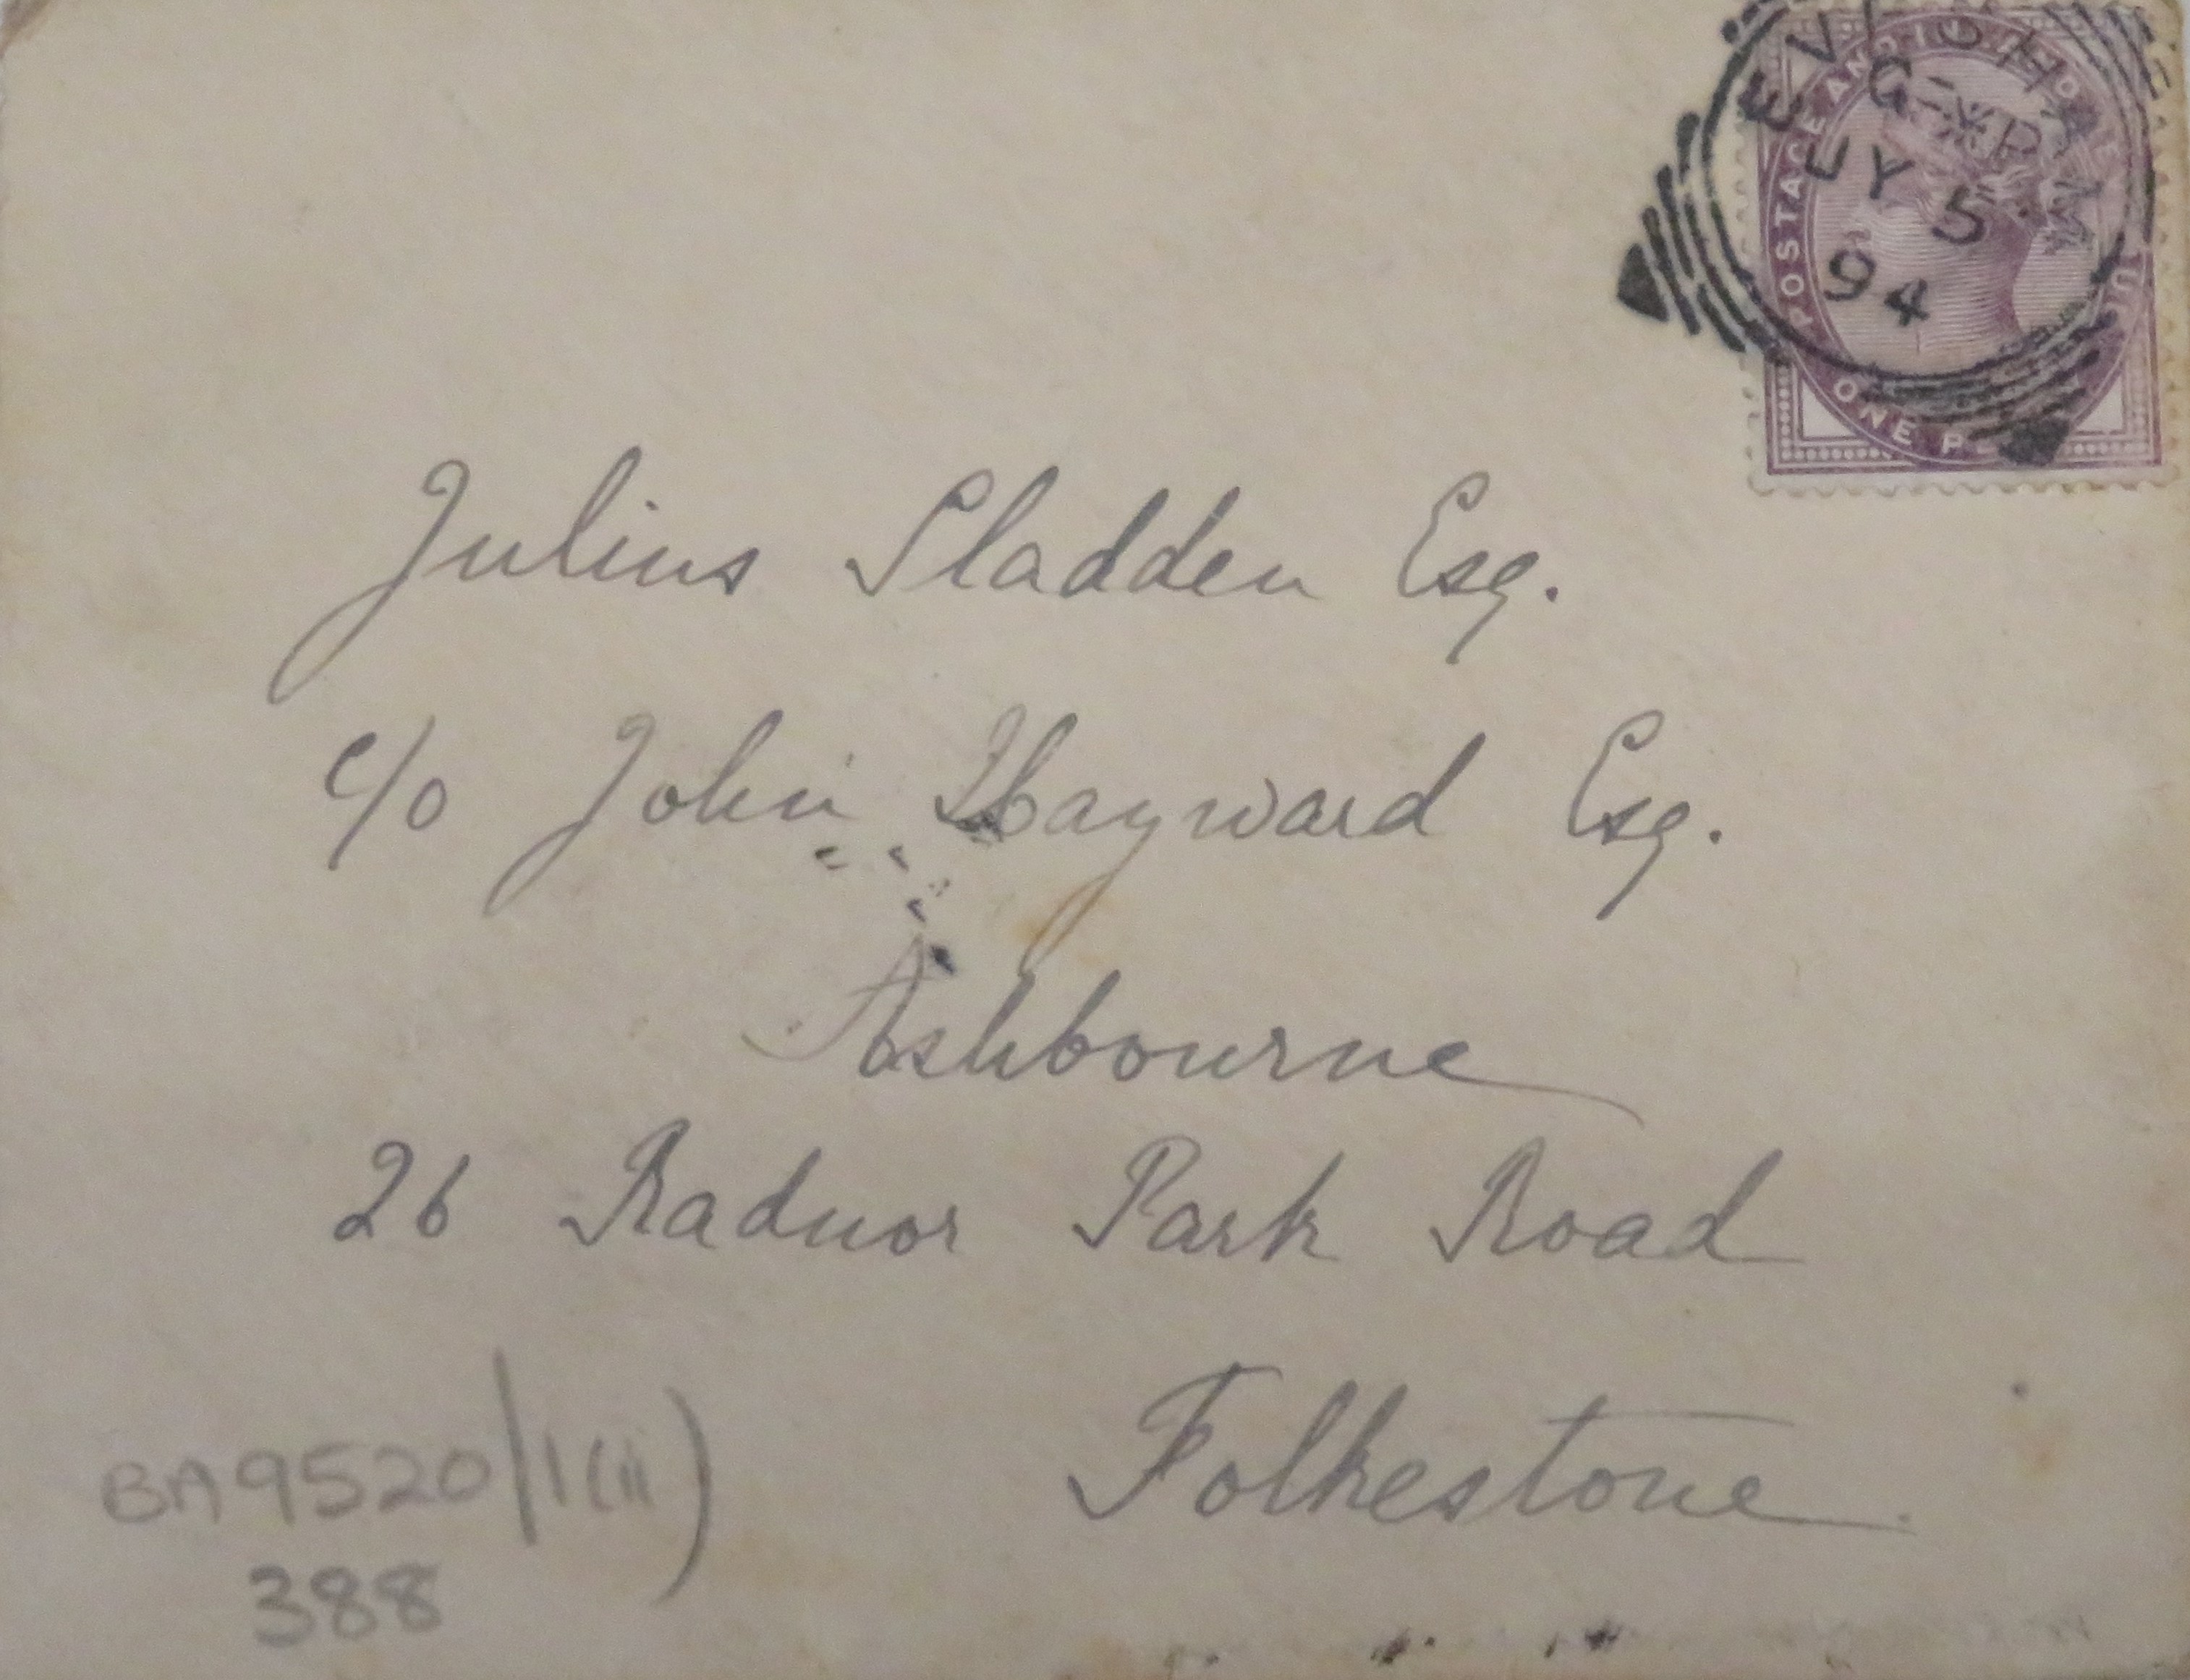 JY 5
94
POSTAGE AND
ONE
Julius Sladden Esq.
c/o John Hayward Esq.
Ashbourne
26 Radnor Park Road
Folkestone
BA9520/1(ii)
388